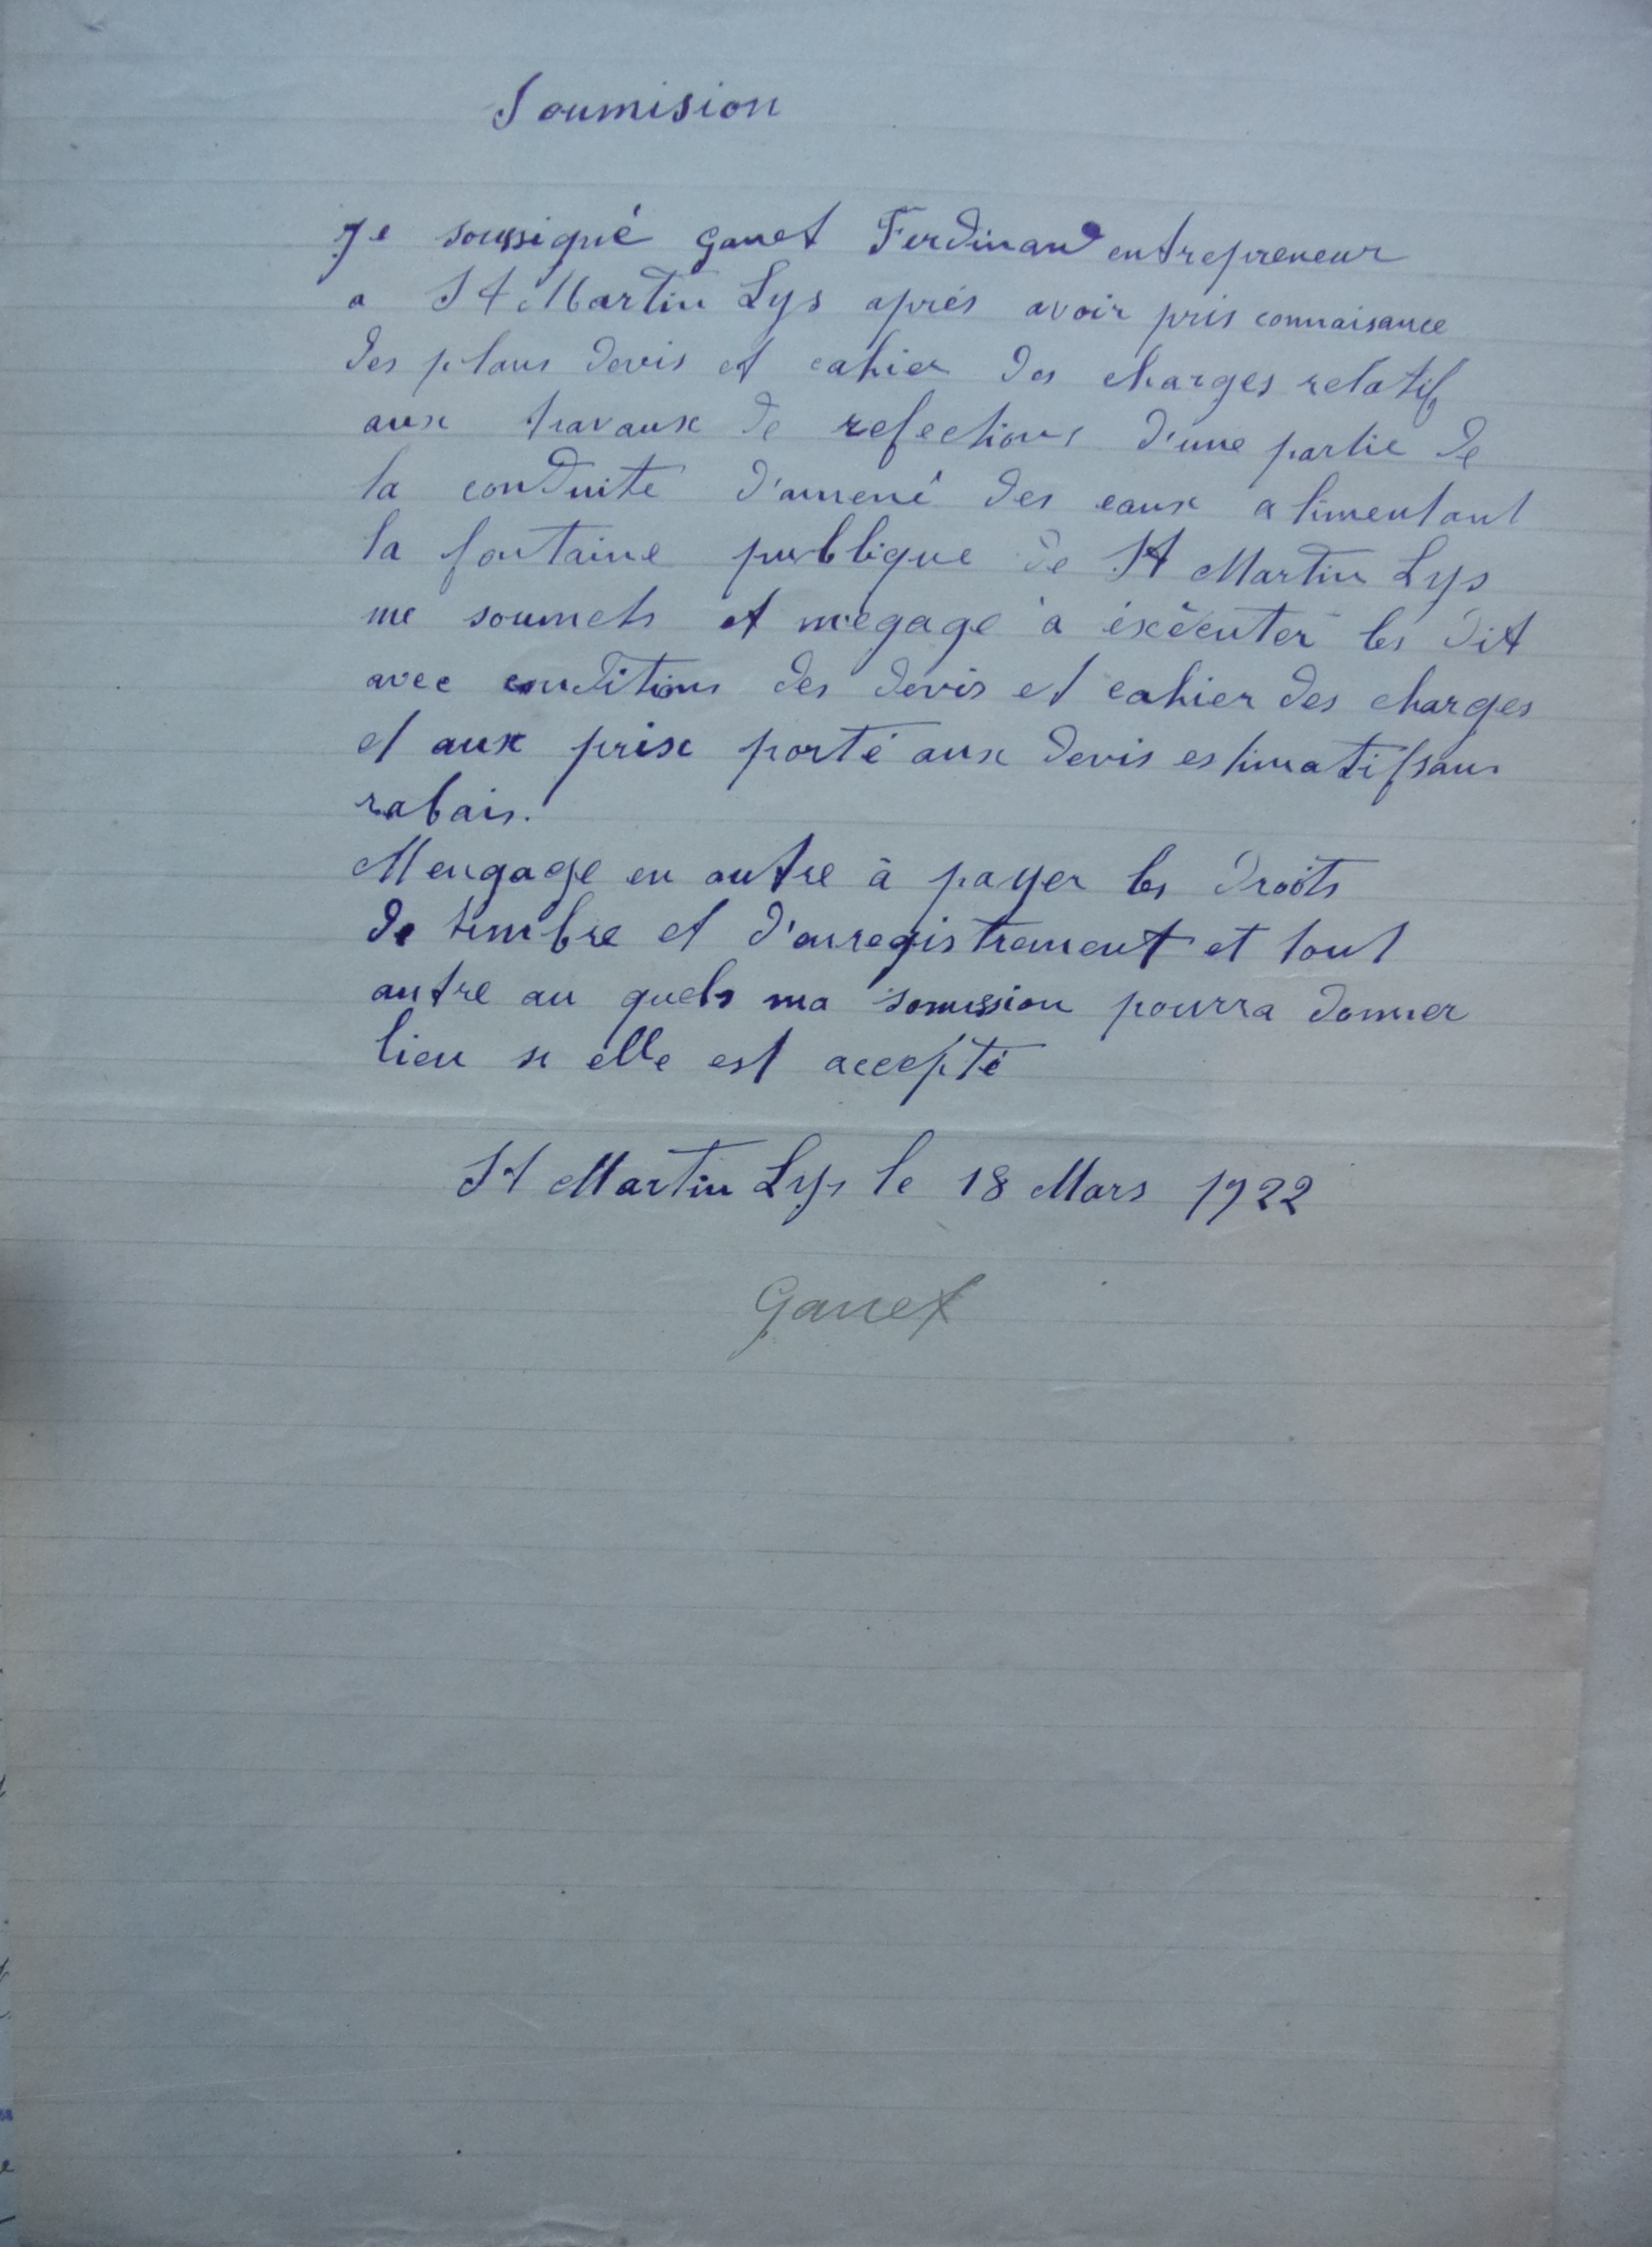 Soumision
Je soussigné Ganet Ferdinand entrepreneur
a St Martin Lys aprés avoir pris connaisance
des plans devis et cahier des charges relatif
aux travaux de refections d'une partie de
la conduite d'amené des eaux alimentant
la fontaine publique de St Martin Lys
me soumets et m'egage à éxécuter les dit
avec conditions des devis et cahier des charges
et aux prix porté aux devis estimatif sans
rabais.
M engage en outre à payer les droits
de timbre et d'enregistrement et tout
autre au quels ma somission pourra donner
lieu si elle est accepté
St Martin Lys le 18 Mars 1922
Ganet